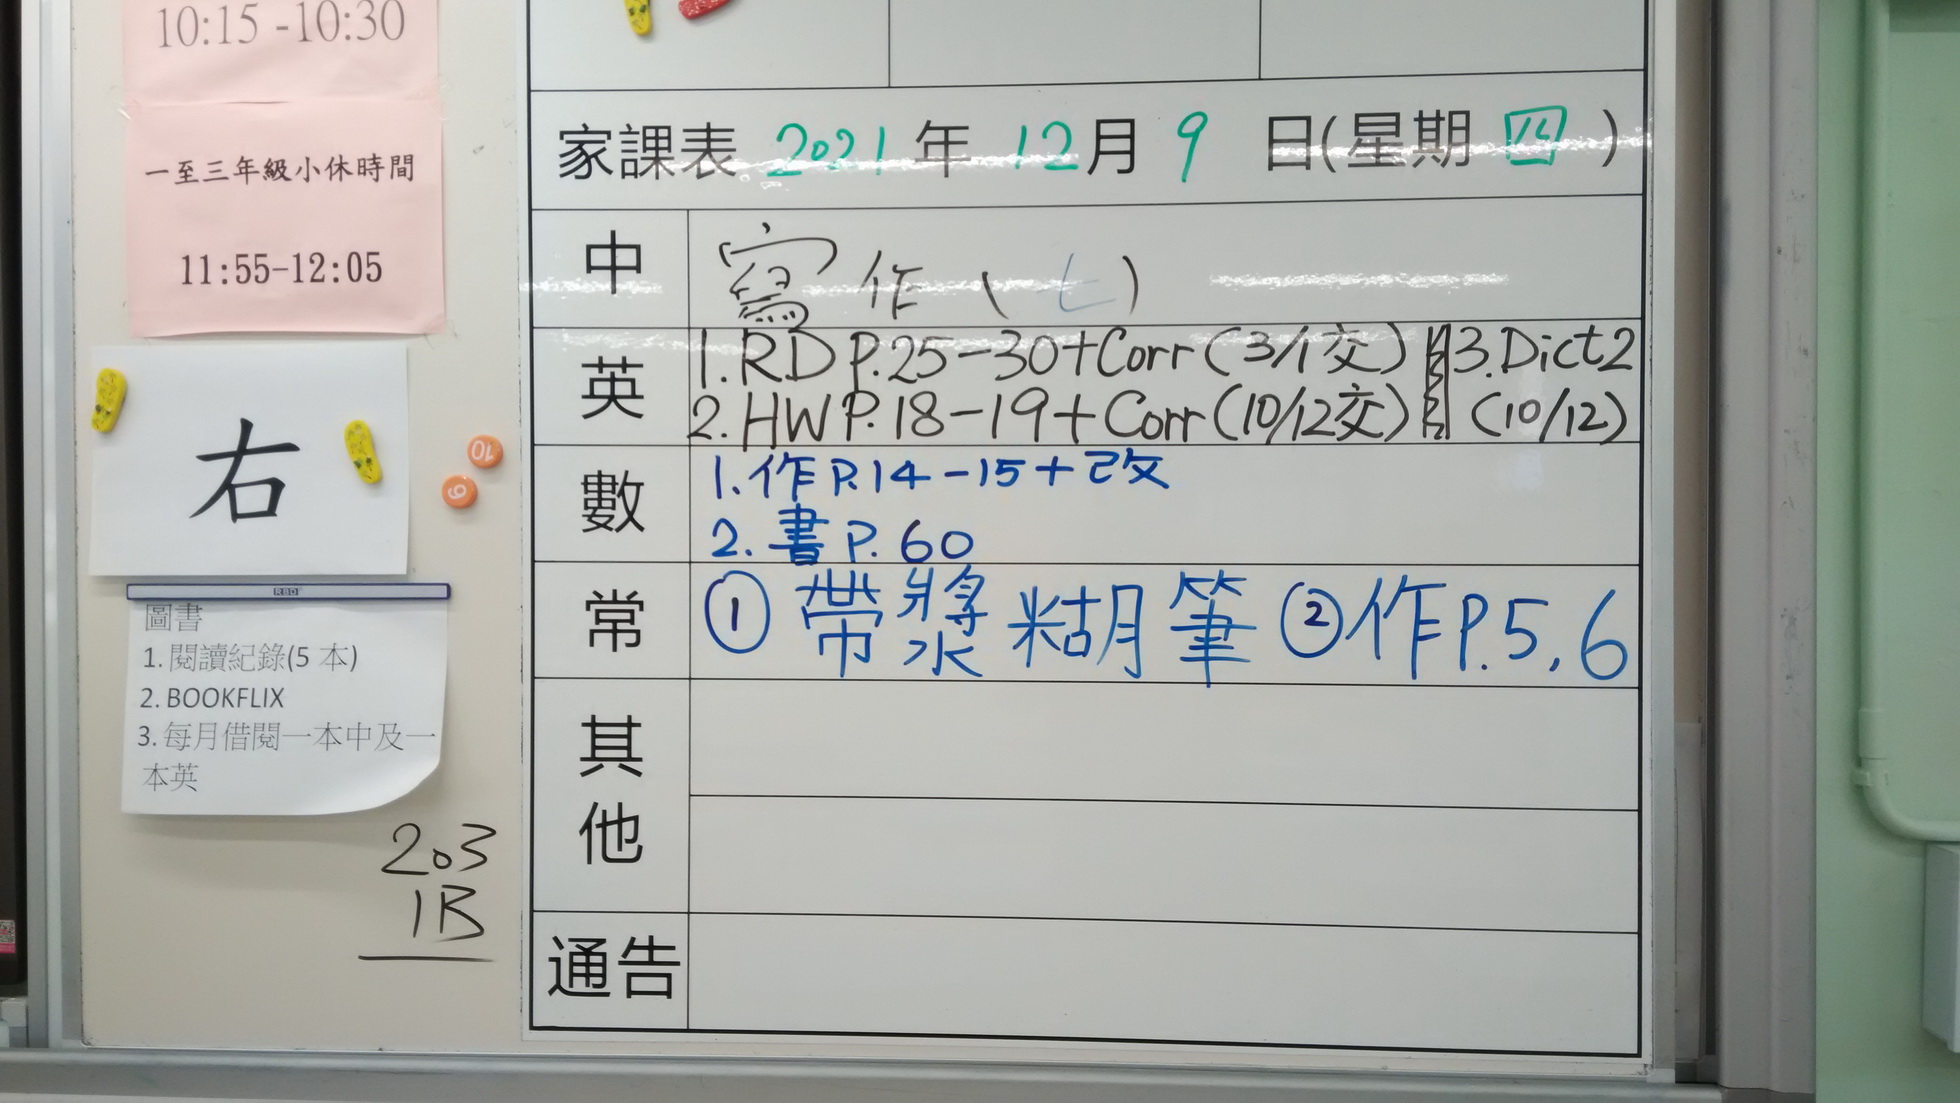 10:15 -10:30
一至三年級小休時間
11:55-12:05
右
10
9
RBD
圖書
1. 閱讀紀錄(5 本)
2. BOOKFLIX
3. 每月借閱一本中及一
本英
203
1B
家課表 2021 年 12 月 9 日(星期 四 )
中
寫作 (七)
英
1. RD P.25-30+Corr (3/1交)
2. HW P.18-19+Corr (10/12交)
3. Dict 2
(10/12)
數
1. 作 P.14-15+改
2. 書 P. 60
常
① 帶漿糊筆 ② 作 P.5, 6
其他
通告